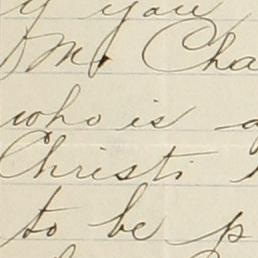 if you
Mr. Cha
who is a
Christi
to be p